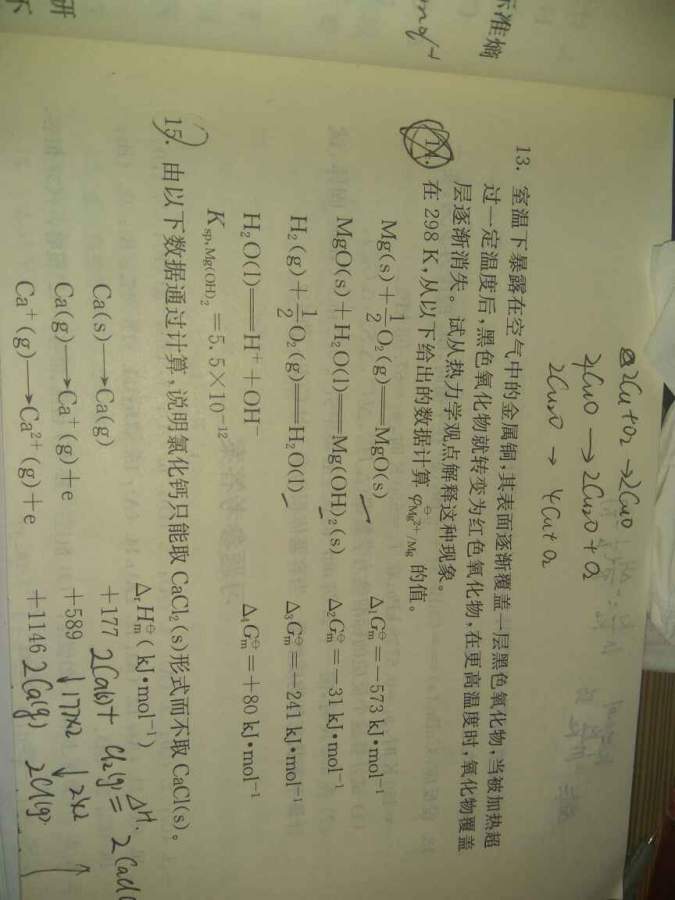 标准熵
研
13. 室温下暴露在空气中的金属铜,其表面逐渐覆盖一层黑色氧化物,当被加热超
过一定温度后,黑色氧化物就转变为红色氧化物,在更高温度时,氧化物覆盖
层逐渐消失。试从热力学观点解释这种现象。
14. 在 298 K,从以下给出的数据计算 φ⊖Mg²⁺/Mg 的值。
Mg(s)+1/2O₂(g)══MgO(s) Δ₁G⊖m=−573 kJ·mol⁻¹
MgO(s)+H₂O(l)══Mg(OH)₂(s) Δ₂G⊖m=−31 kJ·mol⁻¹
H₂(g)+1/2O₂(g)══H₂O(l) Δ₃G⊖m=−241 kJ·mol⁻¹
H₂O(l)══H⁺+OH⁻ Δ₄G⊖m=+80 kJ·mol⁻¹
Ksp,Mg(OH)₂=5.5×10⁻¹²
15. 由以下数据通过计算,说明氯化钙只能取 CaCl₂(s)形式而不取 CaCl(s)。
ΔrH⊖m(kJ·mol⁻¹)
Ca(s)⟶Ca(g) +177
Ca(g)⟶Ca⁺(g)+e +589
Ca⁺(g)⟶Ca²⁺(g)+e +1146
2Cu+O₂→2CuO
4CuO→2Cu₂O+O₂
2Cu₂O→4Cu+O₂
↓177×2
2Ca(g) 2Cl(g)